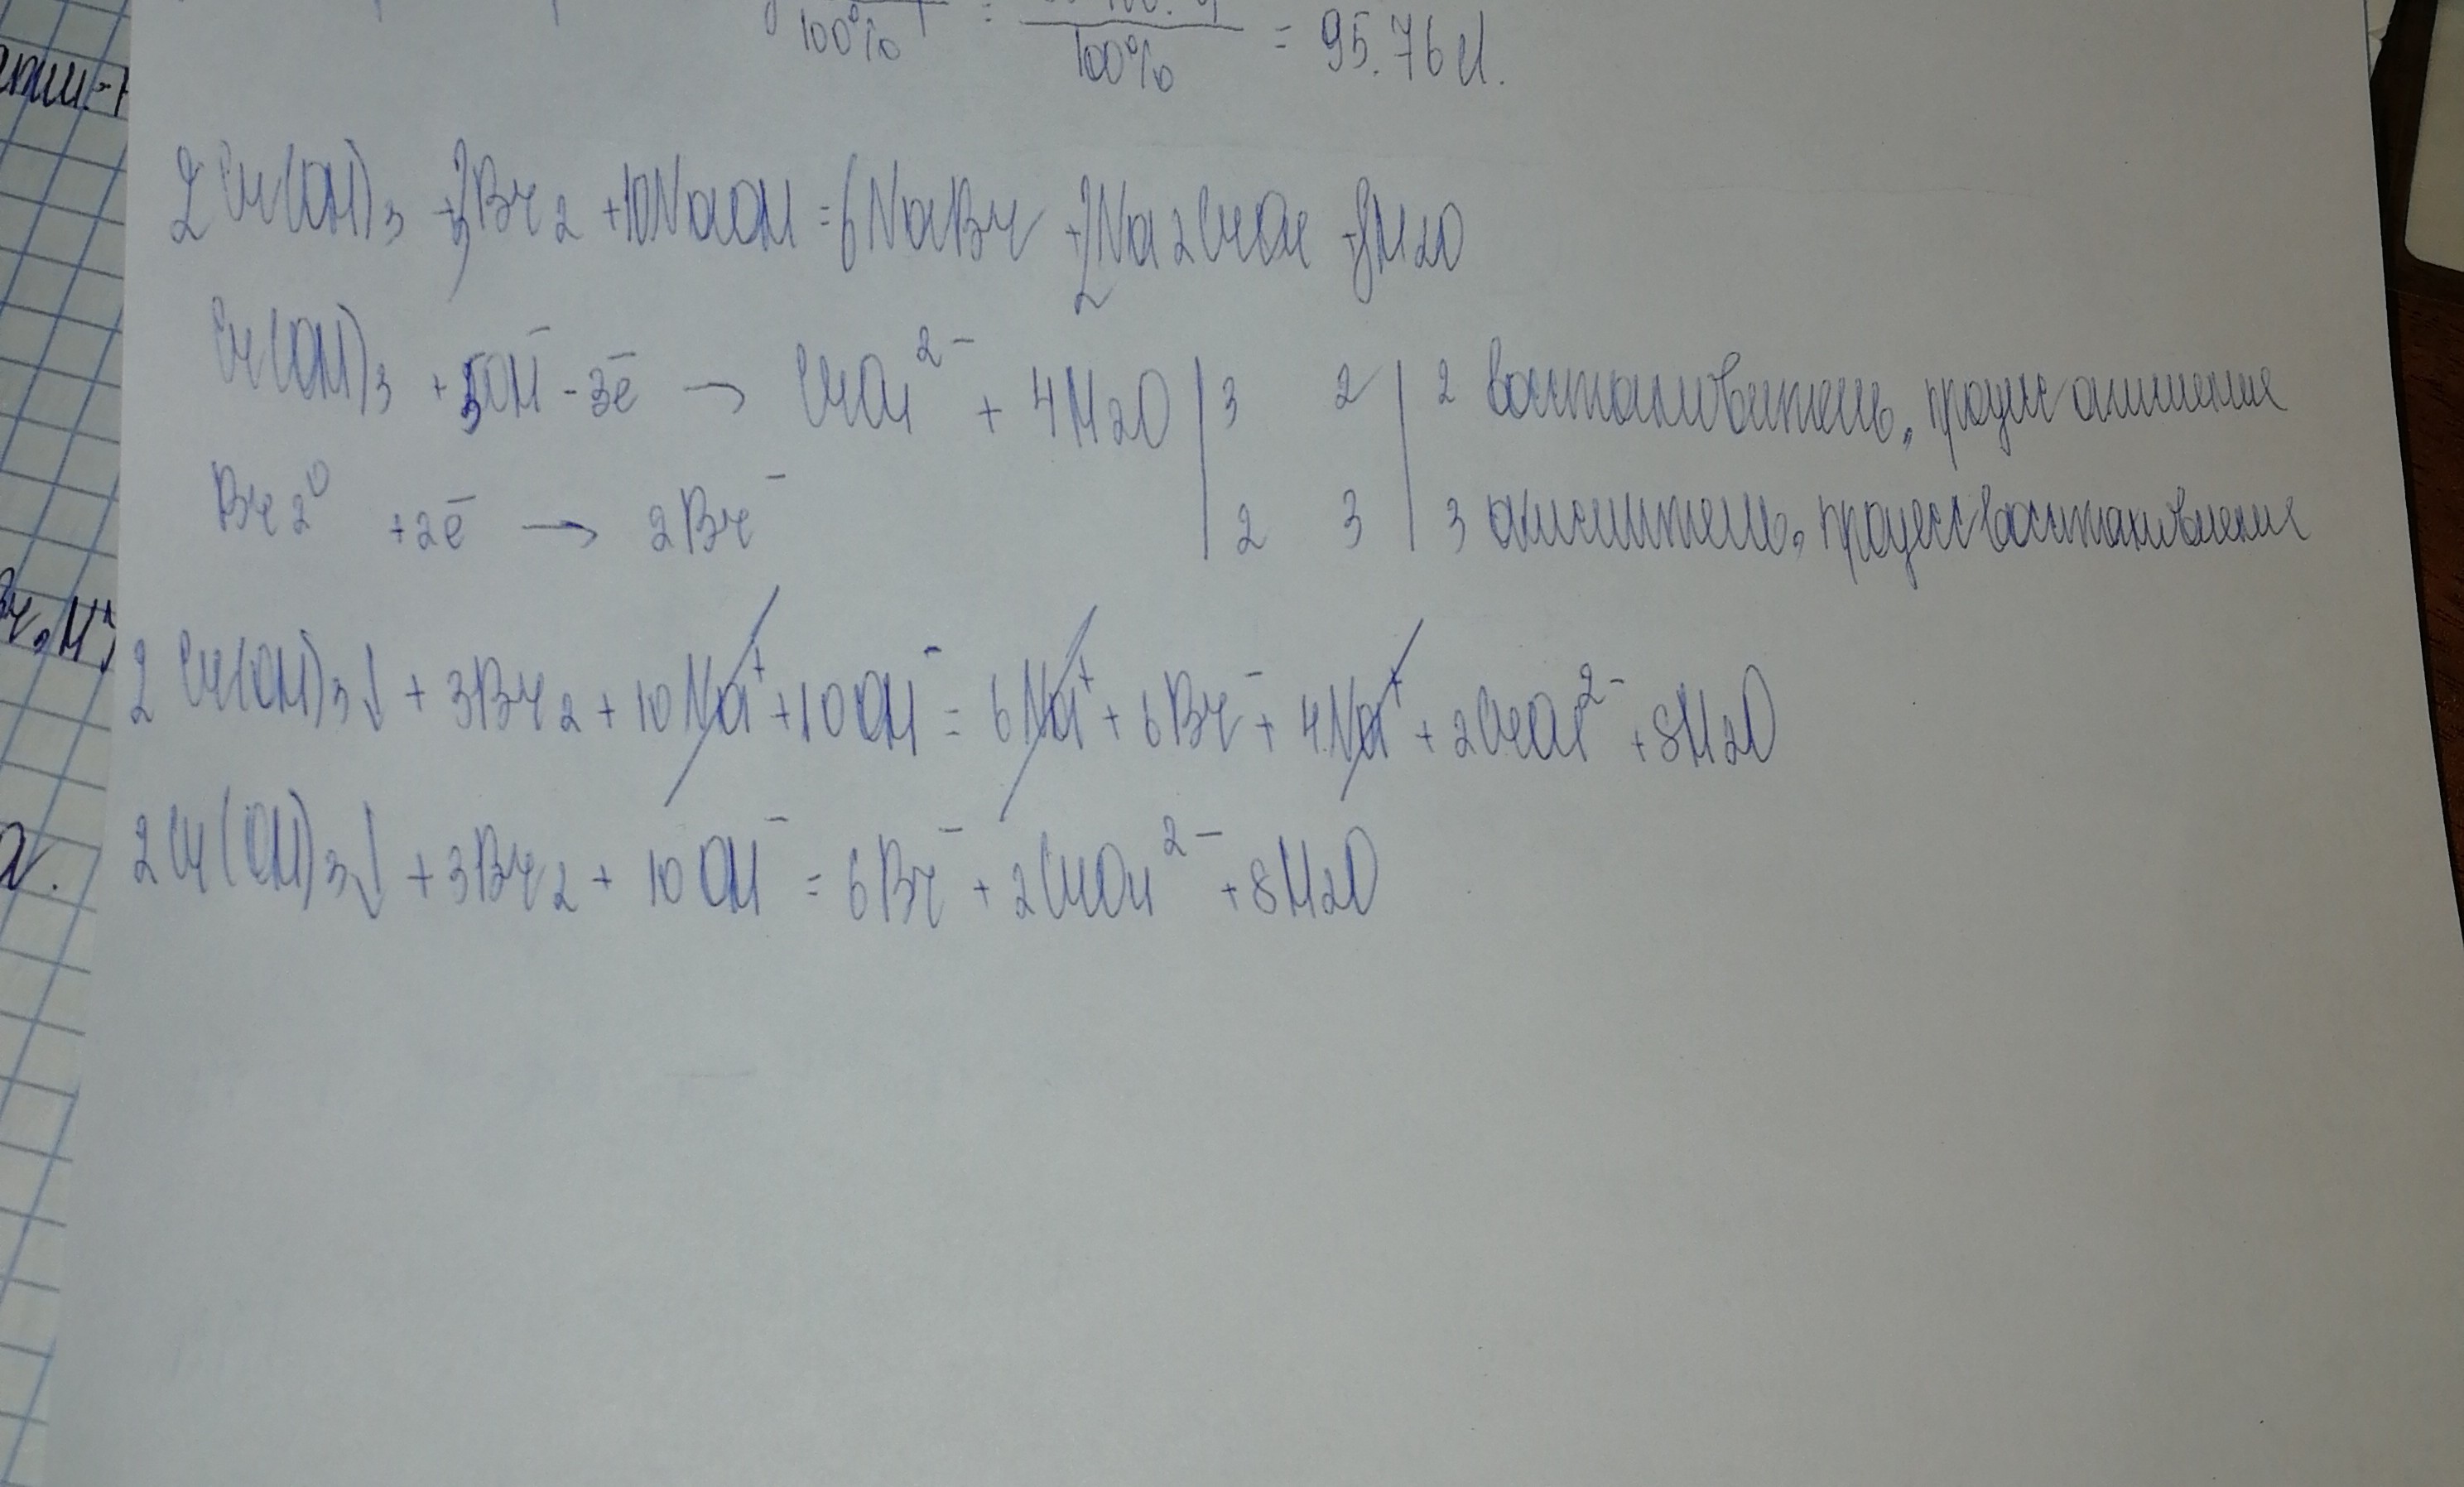 100% = 100% = 95.76 г.
2Cr(OH)3 + 3Br2 + 10NaOH = 6NaBr + 2Na2CrO4 + 8H2O
Cr(OH)3 + 5OH⁻ - 3e̅ → CrO4²⁻ + 4H2O | 3 2 | 2 восстановитель, процесс окисления
Br2⁰ + 2e̅ → 2Br⁻ | 2 3 | 3 окислитель, процесс восстановления
2Cr(OH)3↓ + 3Br2 + 10Na⁺ + 10OH⁻ = 6Na⁺ + 6Br⁻ + 4Na⁺ + 2CrO4²⁻ + 8H2O
2Cr(OH)3↓ + 3Br2 + 10OH⁻ = 6Br⁻ + 2CrO4²⁻ + 8H2O